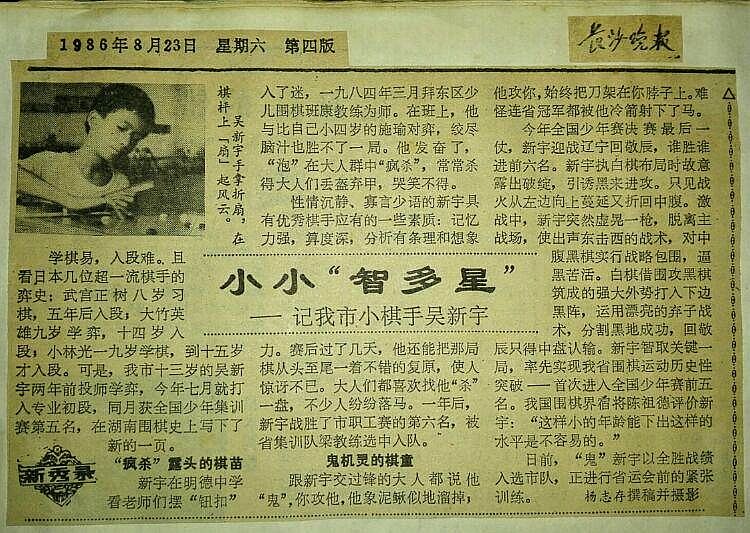 1986年8月23日 星期六 第四版
长沙晚报
吴新宇手拿折扇，在
棋枰上“扇”起风云。
学棋易，入段难。且
看日本几位超一流棋手的
弈史：武宫正树八岁习
棋，五年后入段；大竹英
雄九岁学弈，十四岁入
段；小林光一九岁学棋，到十五岁
才入段。可是，我市十三岁的吴新
宇两年前投师学弈，今年七月就打
入专业初段，同月获全国少年集训
赛第五名，在湖南围棋史上写下了
新的一页。
新秀录
“疯杀”露头的棋苗
新宇在明德中学
看老师们摆“钮扣”
入了迷，一九八四年三月拜东区少
儿围棋班康教练为师。在班上，他
与比自己小四岁的施瑜对弈，绞尽
脑汁也胜不了一局。他发奋了，
“泡”在大人群中“疯杀”，常常杀
得大人们丢盔弃甲，哭笑不得。
性情沉静、寡言少语的新宇具
有优秀棋手应有的一些素质：记忆
力强，算度深，分析有条理和想象
小小“智多星”
——记我市小棋手吴新宇
力。赛后过了几天，他还能把那局
棋从头至尾一着不错的复原，使人
惊讶不已。大人们都喜欢找他“杀”
一盘，不少人纷纷落马。一年后，
新宇战胜了市职工赛的第六名，被
省集训队梁教练选中入队。
鬼机灵的棋童
跟新宇交过锋的大人都说他
“鬼”，你攻他，他象泥鳅似地溜掉；
他攻你，始终把刀架在你脖子上。难
怪连省冠军都被他冷箭射下了马。
今年全国少年赛决赛最后一
仗，新宇迎战辽宁回敬辰，谁胜谁
进前六名。新宇执白棋布局时故意
露出破绽，引诱黑来进攻。只见战
火从左边向上蔓延又折回中腹。激
战中，新宇突然虚晃一枪，脱离主
战场，使出声东击西的战术，对中
腹黑棋实行战略包围，逼
黑苦活。白棋借围攻黑棋
筑成的强大外势打入下边
黑阵，运用漂亮的弃子战
术，分割黑地成功，回敬
辰只得中盘认输。新宇智取关键一
局，率先实现我省围棋运动历史性
突破——首次进入全国少年赛前五
名。我国围棋界宿将陈祖德评价新
宇：“这样小的年龄能下出这样的
水平是不容易的。”
日前，“鬼”新宇以全胜战绩
入选市队，正进行省运会前的紧张
训练。 杨志存撰稿并摄影